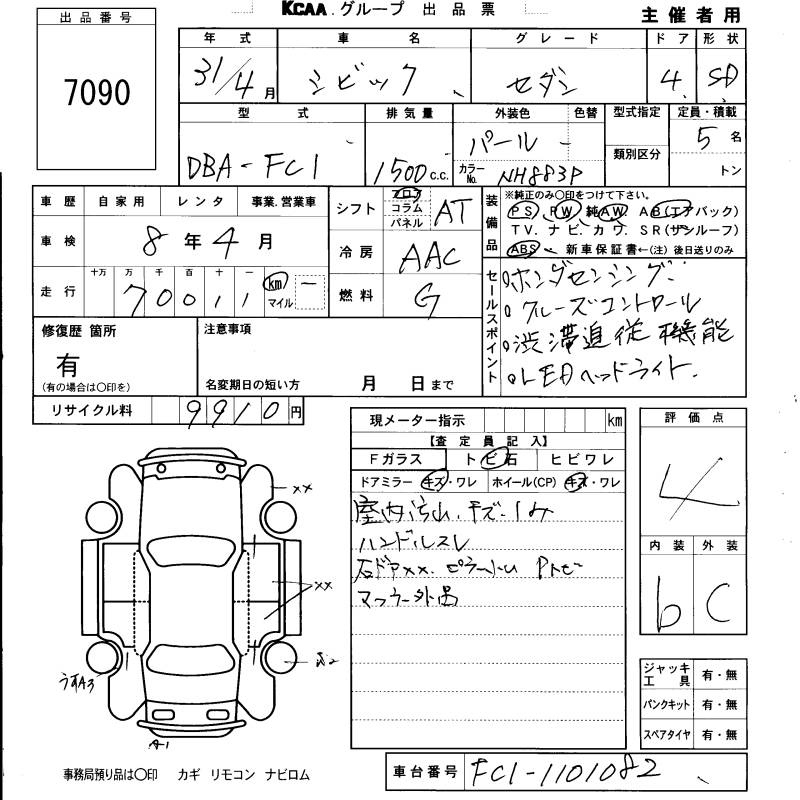 KCAA.グループ 出品票
主催者用
出品番号
7090
年式 車名 グレード ドア 形状
31/4月 シビック セダン 4 SD
型式 排気量 外装色 色替 型式指定 定員・積載
DBA-FC1 1500c.c. パール 5名
カラーNo. NH883P 類別区分 トン
車歴 自家用 レンタ 事業.営業車
車検 8年4月
走行 十万 万 千 百 十 一 km マイル
70011
シフト フロア コラム パネル AT
冷房 AAC
燃料 G
装備品
※純正のみ○印をつけて下さい。
PS. PW 純AW. AB(エアバック)
TV. ナビ. カワ. SR(サンルーフ)
ABS 新車保証書←(注)後日送りのみ
セールスポイント
ホンダセンシング
クルーズコントロール
渋滞追従機能
LEDヘッドライト
修復歴 箇所
有
(有の場合は○印を)
注意事項
名変期日の短い方 月 日まで
リサイクル料 9910円
現メーター指示 km
【査定員記入】
Fガラス トビ石 ヒビワレ
ドアミラー キズ・ワレ ホイール(CP) キズ・ワレ
室内汚れ.キズ.しみ
ハンドルスレ
右ドアxx. ピラー小凹 Pトビ
マフラー外品
評価点
4
内装 外装
b C
xx
xx
うすA3
A1
ジャッキ工具 有・無
パンクキット 有・無
スペアタイヤ 有・無
事務局預り品は○印 カギ リモコン ナビロム
車台番号 FC1-1101082